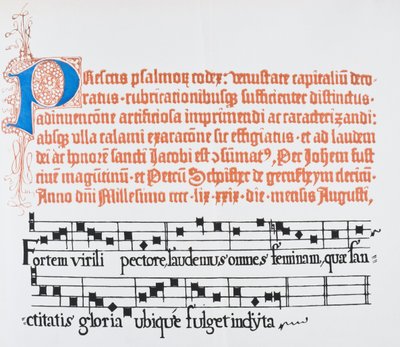 PResens psalmoꝝ codex: venustate capitaliū deco⸗
ratus·rubricationibusqꝫ sufficienter distinctus·
adinuencōne artificiosa imprimendi ac caracterizandi:
absqꝫ vlla calami exaracōne sic effigiatus·et ad laudem
dei ac honorē sancti Jacobi est ɔsūmatꝰ, Per Johēm fust
ciuē magūtinū·et Petrū Schoiffher de gernsheym clericū·
Anno dn̄i Millesimo cccc·lix·xxix·die·mensis Augusti,
Fortem virili pectore, laudemus omnes feminam, quæ san⸗
ctitatis gloria ubique fulget inclyta